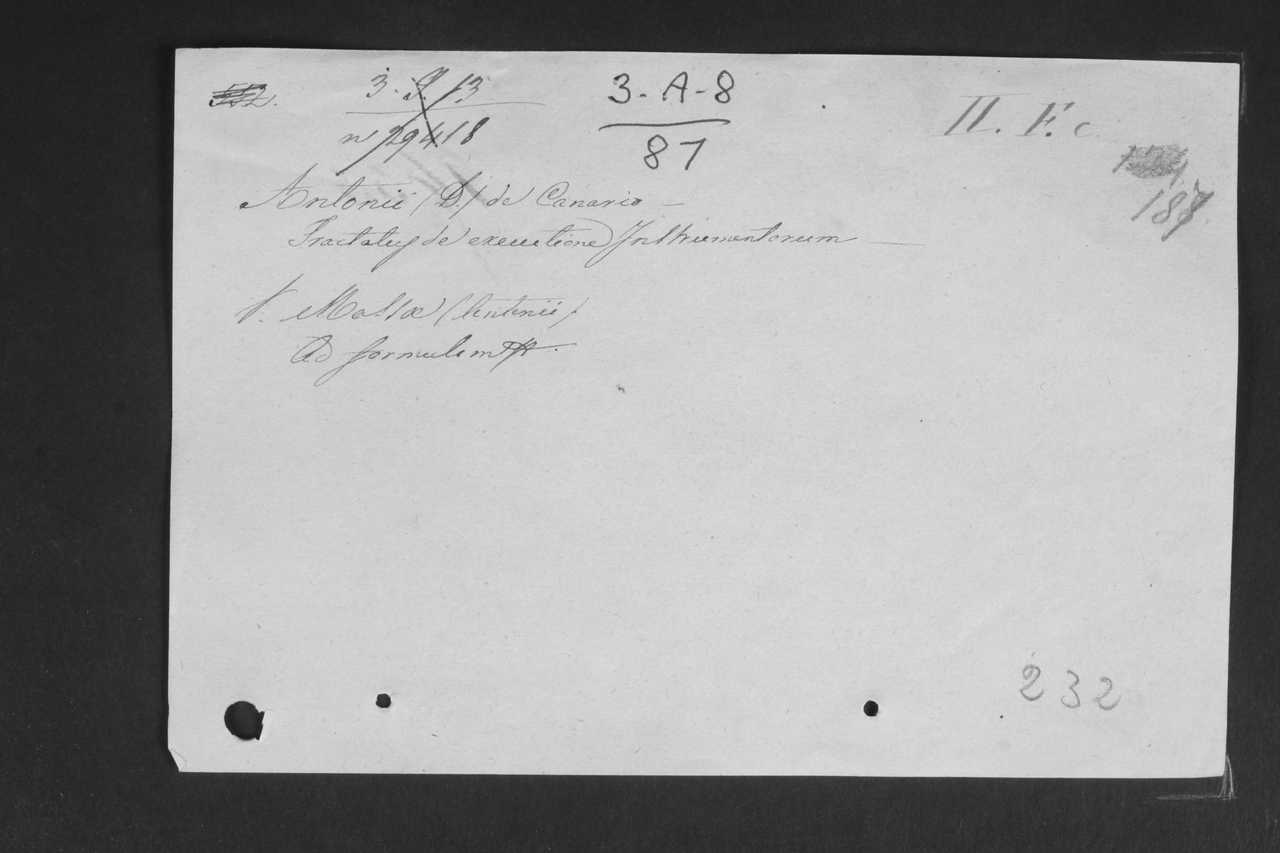 3-A-8
87
II. F. c
187
Antonii (D.) de Canario —
Tractatus de executione Instrumentorum —
V. Massæ (Antonii)
Ad formulam
232